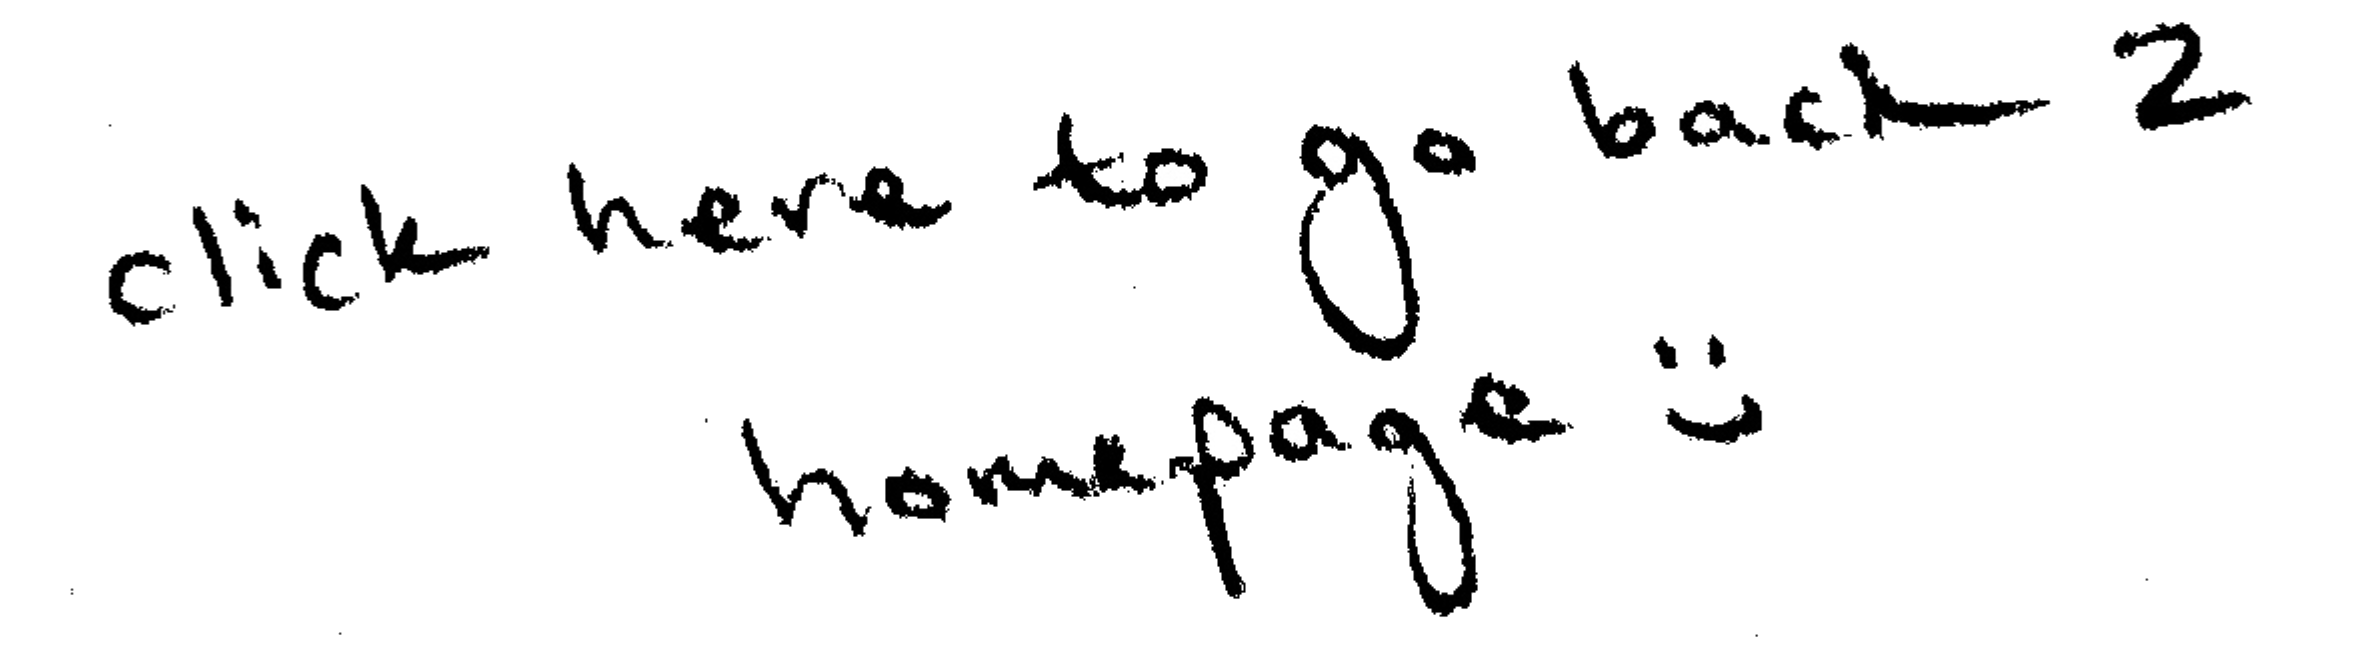 click here to go back 2
homepage :)